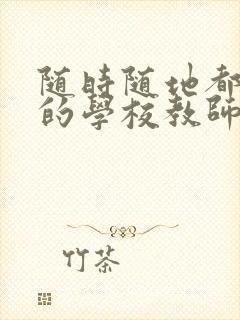 随時随地都
的學校教師
竹茶